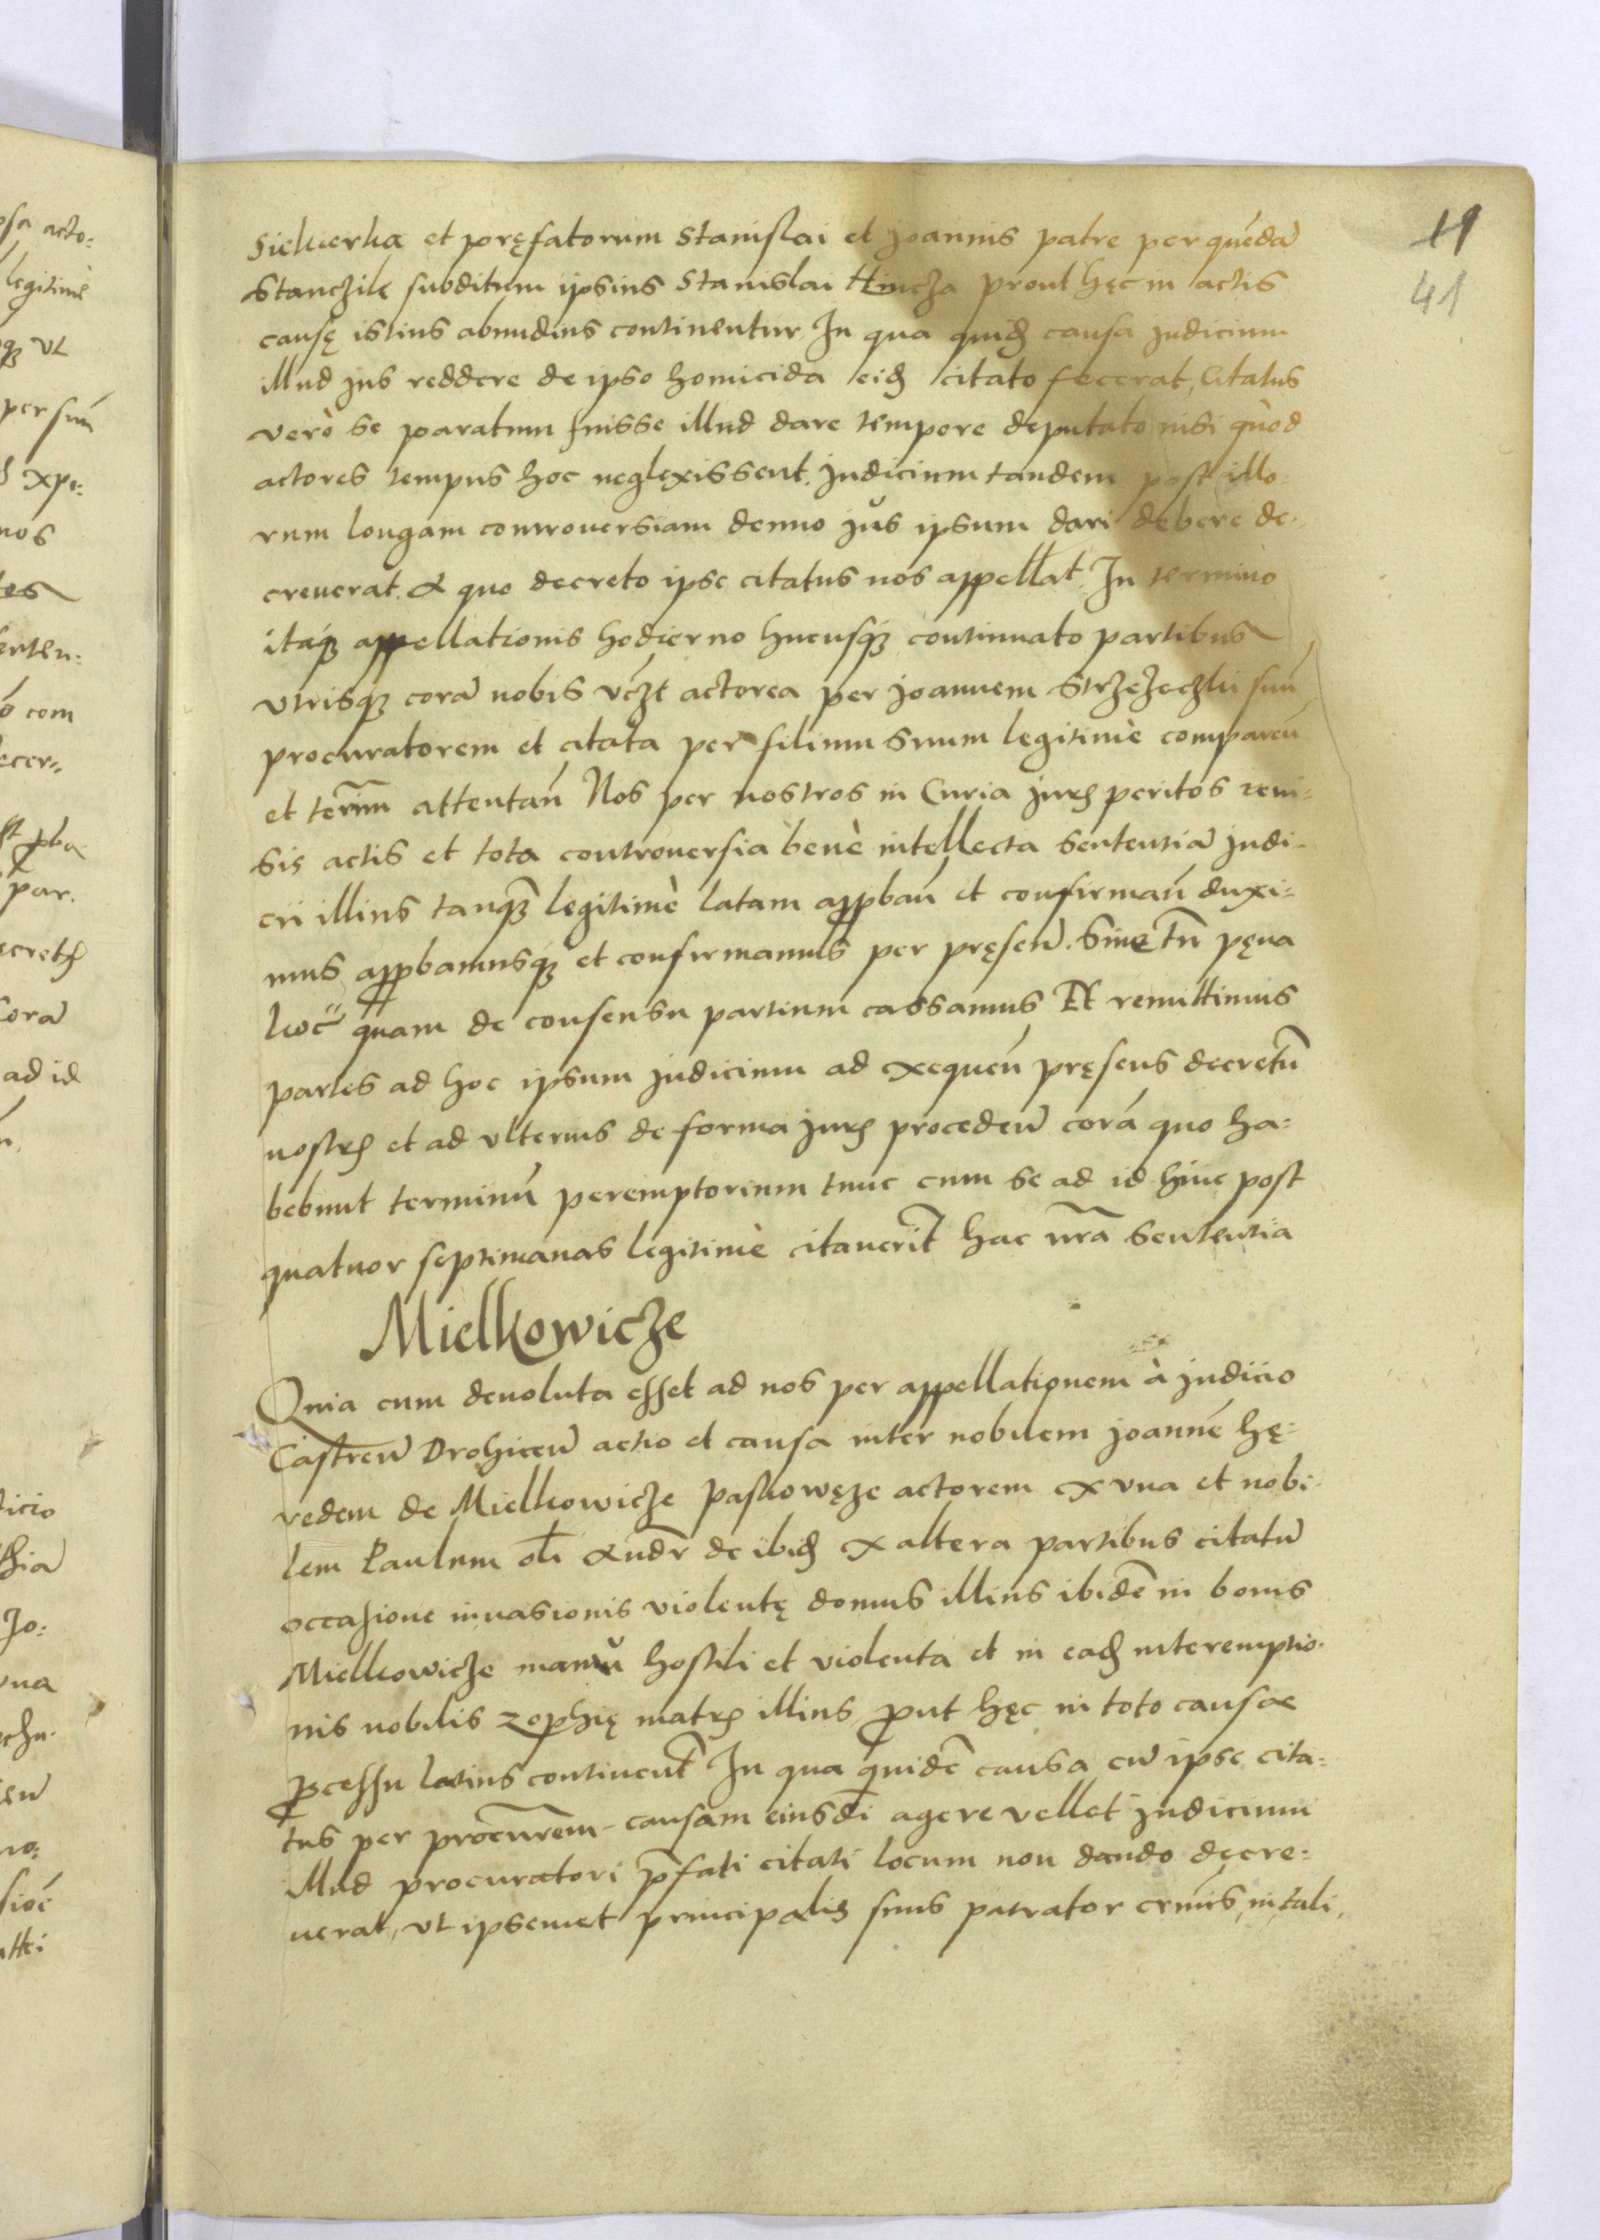 11
41
Siekierka et pręfatorum Stanislai et Joannis patrę per quēdā
Stanczilę subditum ipsius Stanislai Hincza prout hęc in actis
causę istius abundius continentur. In qua quiđ causa Judicium
illud Jus reddere de ipso homicida eiđ citato fecerat, Citatus
verò se paratum fuisse illud dare tempore deputato nisi quòd
actores tempus hoc neglexissent. Judicium tandem post illo:
rum longam controversiam denuo Jus ipsum dari debere de:
creverat. A quo decreto ipse citatus nos appellat. In termino
itaq₃ appellationis hodierno hucusq₃ continuato partibus
utrisq₃ corā nobis vcz̄t actorea per Joannem Strzezeczki suū
procuratorem et citata per filium suum legitimè compareñ
et termm̄ attentañ Nos per nostros in Curia Juris peritos revi:
sis actis et tota controversia benè intellecta sententiā Judi:
cii illius tanq̄ legitimè latam appbañ et confirmañ duxi:
mus appbamusq₃ et confirmamus per pręseñ. Sine tn̄ pęna
quam de consensu partium cassamus Et remittimus
partes ad hoc ipsum Judicium ad exequeñ pręsens decretū
nostrū et ad ulterius de forma Juris procedeñ corā quo ha:
bebunt terminū peremptorium tunc cum se ad id hinc post
quatuor septimanas legitimè citaverīt hac nr̄a sententia
Mielkowicze
Quia cum devoluta esset ad nos per appellationem à Judicio
Castreñ Drohiceñ actio et causa inter nobilem Joannē hę:
redem de Mielkowicze Paskowęze actorem ex una et nobi:
lem Paulum oli Andr̄ de ibiđ ex altera partibus citatū
occasione invasionis violentę domus illius ibidē in bonis
Mielkowicze manu hostili et violenta et in eađ interemptio:
nis nobilis Zophię matris illius, put hęc in toto causae
pcessu latius continent̄ In qua quidē causa cū ipse cita:
tus per procurem̄ causam eiusdi agere vellet Judicium
illud procuratori p̄fati citati locum non dando decre:
verat, ut ipsemet principalis suus patrator crīnis, in tali,